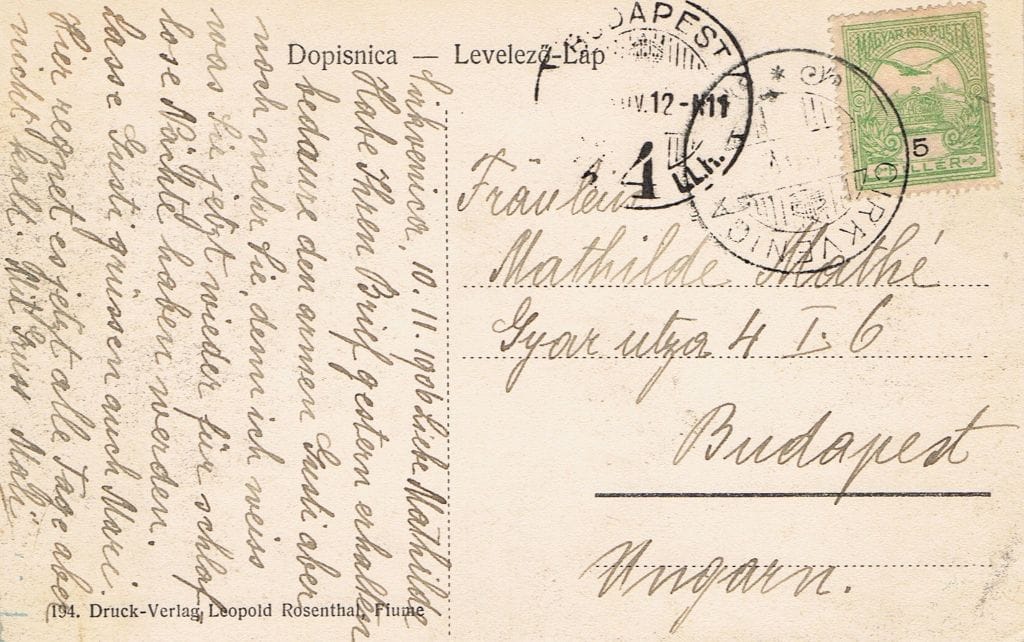 Dopisnica — Levelező-Lap
Cirkvenica, 10. 11. 1906 Liebe Mathilde
Habe Ihren Brief gestern erhalten
bedaure den armen Gusti aber
noch mehr Sie, denn ich weiss
was Sie jetzt wieder für schlaf
lose Nächte haben werden.
Lasse Gusti grüssen auch Mari.
Hier regnet es jetzt alle Tage aber
nicht kalt. Mit Gruss
BUDAPEST
NOV. 12
4
CIRKVENICA
MAGYAR KIR. POSTA
5
FILLÉR
Fräulein
Mathilde Mathé
Gyar utza 4 I. 6
Budapest
Ungarn.
194. Druck-Verlag, Leopold Rosenthal, Fiume